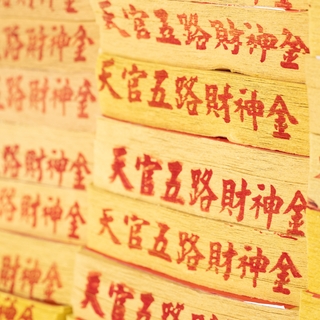 天官五路財神金
天官五路財神金
天官五路財神金
天官五路財神金
天官五路財神金
路財神金
路財神金
路財神金
路財神金
財神金